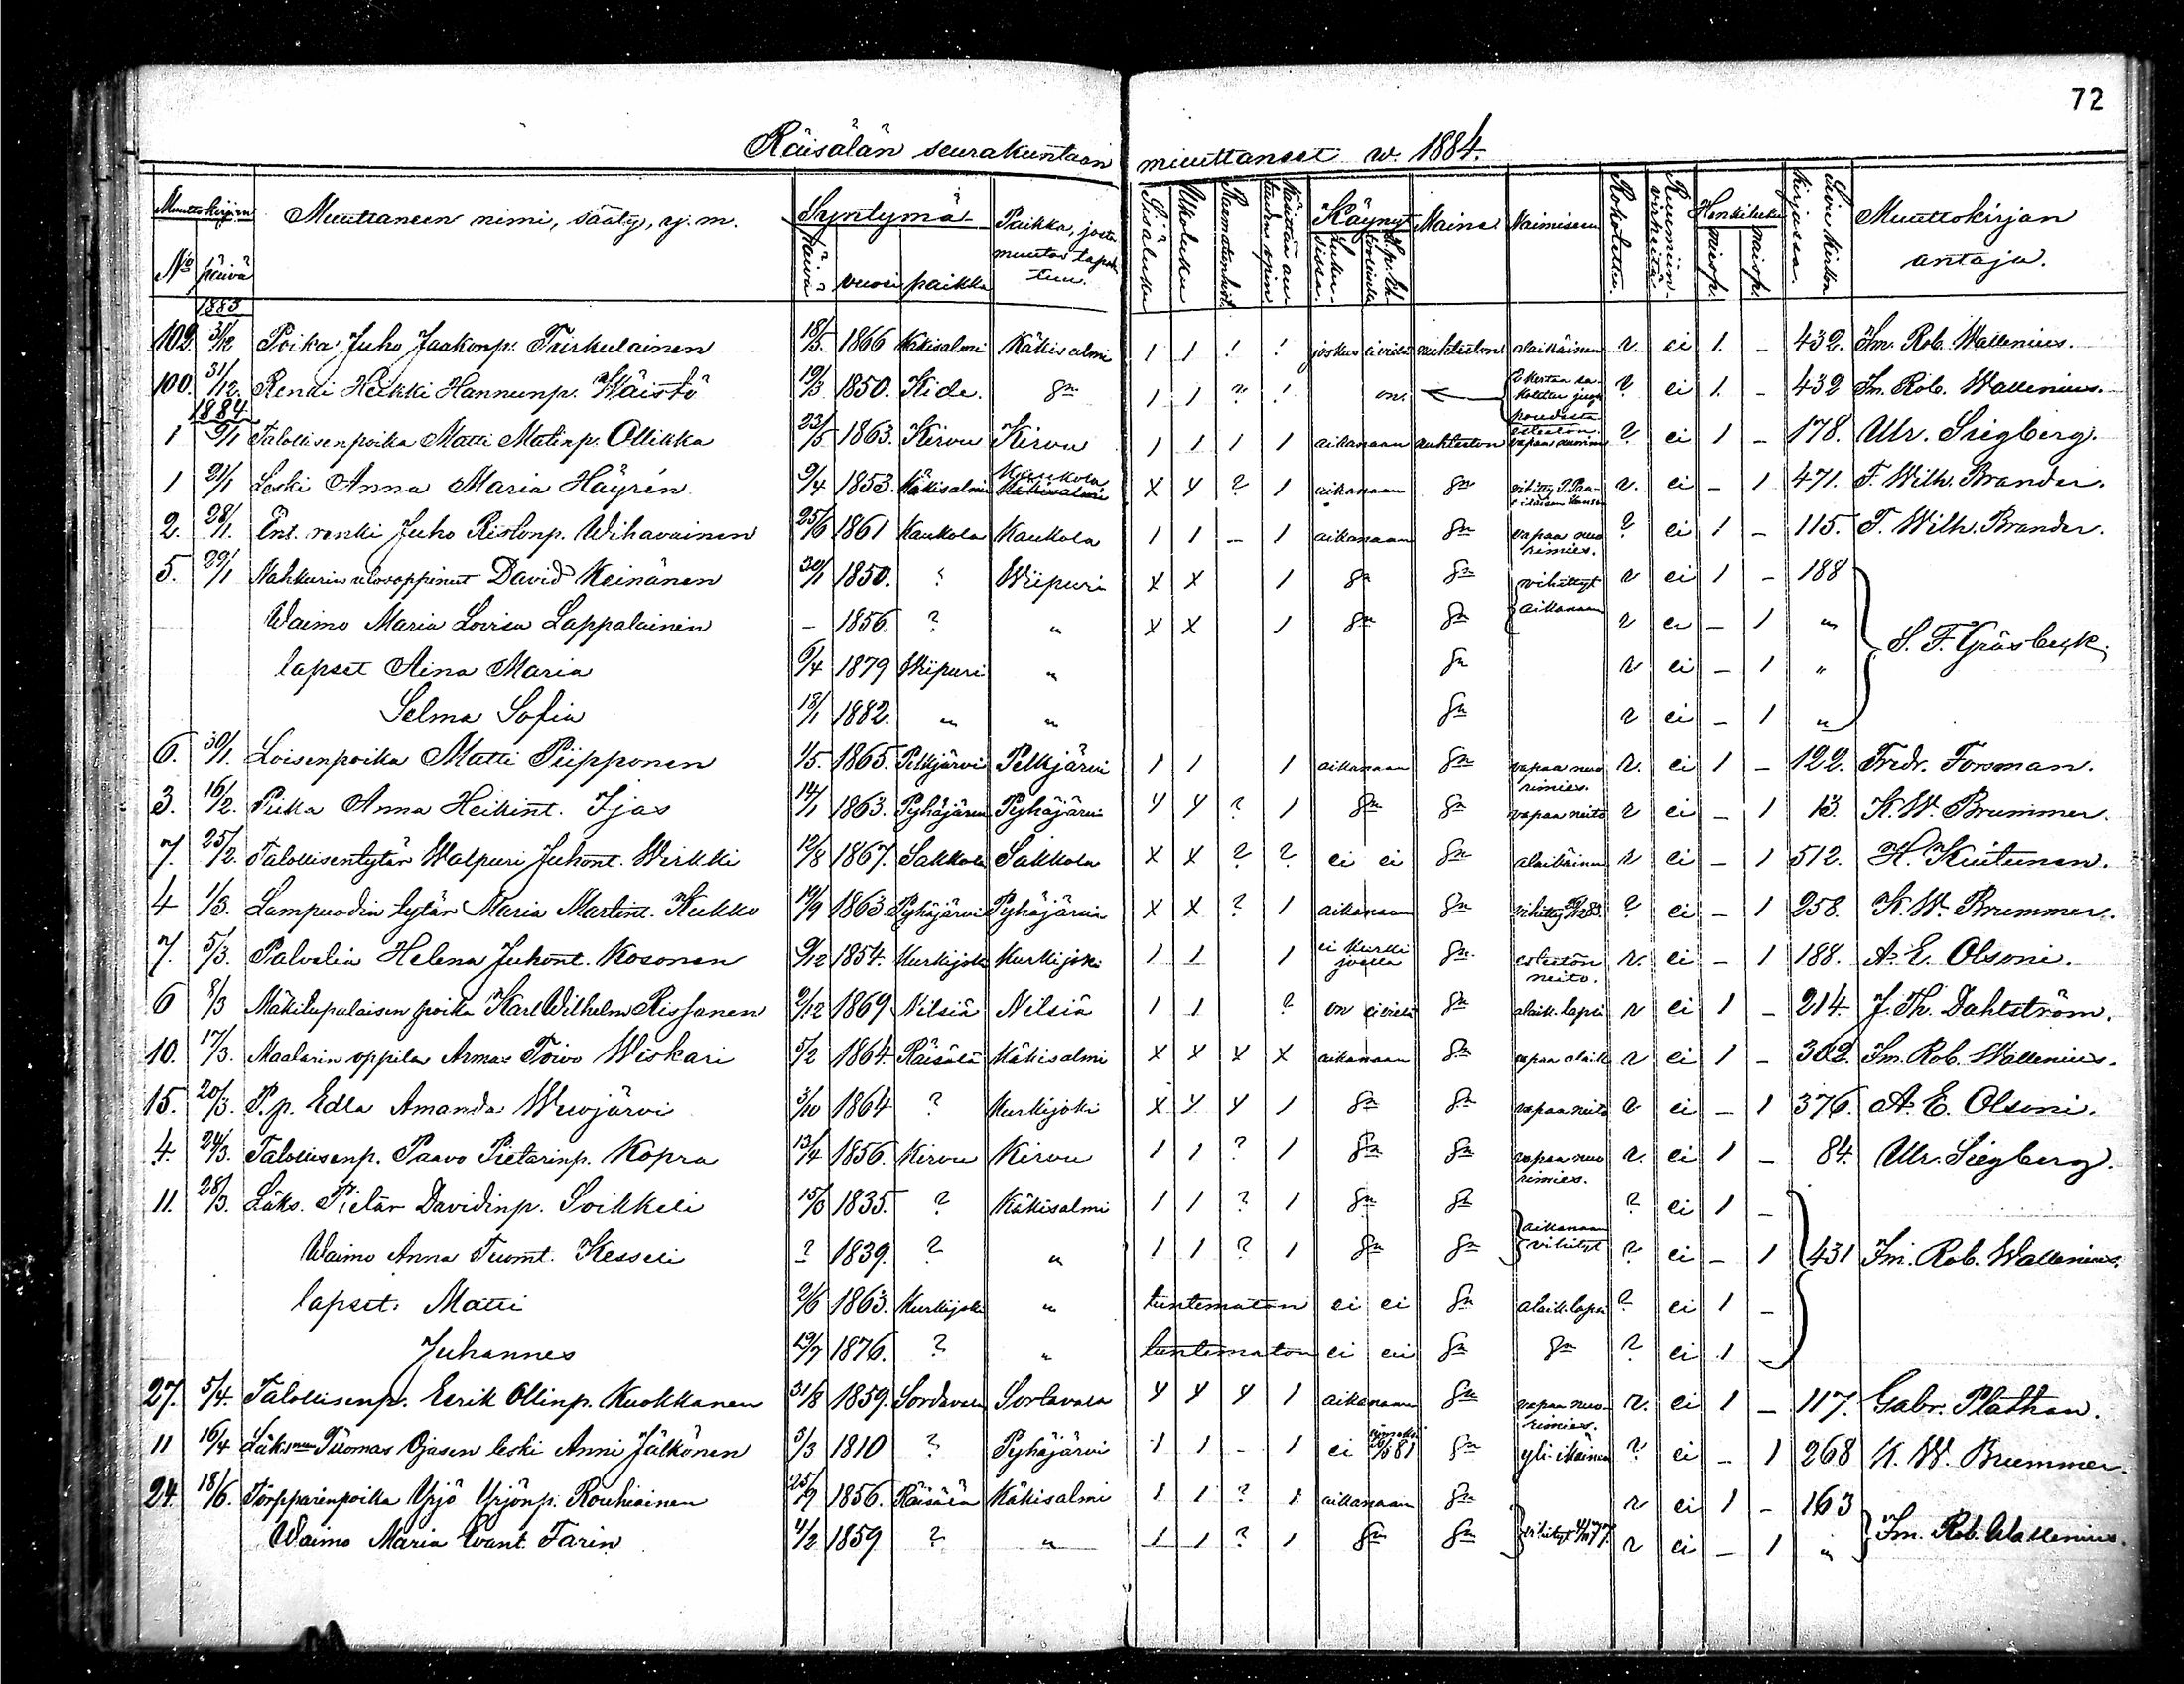 72
Räisälän seurakuntaan muuttaneet w. 1884.
Muuttokirjan Muuttaneen nimi, sääty, y. m. Syntymä Paikka, josta muutos tapahtuu. Sisäluku Ulkoluku Käynyt Maine Naimisesta Rokotettu. Ruumiinvirheitä Henkiluku kirjassa Muuttokirjan antaja.
No päivä päivä vuosi paikka miesp. naisp.
1883
102. 31/12 Poika Juho Jaakonp. Turkulainen 18/5. 1866 Käkisalmi Käkisalmi 1 1 ! ! joskus ei vielä nuhteeton alaikäinen r. ei 1. – 432. Im. Rob. Wallenius.
100. 31/12. Renki Heikki Hannunp. Wäistö 19/3 1850. Kide. Sn 1 1 ? ! on. ? ei 1. – 432 Im. Rob. Wallenius.
1884
1 9/1 Talollisenpoika Matti Matinp. Ollikka 23/5 1863. Kirvu Kirvu 1 1 1 1 aikanaan nuhteeton esteetön. ? ei 1 – 178. Ulr. Siegberg.
1 21/1 Leski Anna Maria Häyrén 9/4 1853. Käkisalmi Kaukola Käkisalmi X X ? 1 aikanaan Sn r. ei – 1 471. F. Wilh. Brander.
2. 28/1. Ent. renki Juho Ristonp. Wihavainen 25/6 1861 Kaukola Kaukola 1 1 – 1 aikanaan Sn vapaa nuorimies. ? ei 1 – 115. F. Wilh. Brander.
5. 29/1 Nahkurin ulosoppinut David Keinänen 30/1 1850. ? Wiipuri X X 1 Sn Sn vihityt aikanaan r ei 1 – 188
Waimo Maria Lovisa Lappalainen – 1856. ? " X X 1 Sn Sn r ei – 1 " S. F. Gräsbeck.
lapset Aina Maria 6/4 1879 Wiipuri " Sn r ei – 1 "
Selma Sofia 18/1 1882. " " Sn r ei – 1 "
6. 30/1. Loisenpoika Matti Piipponen 1/5. 1865. Pelkjärvi Pelkjärvi 1 1 1 aikanaan Sn vapaa nuorimies. r. ei 1 – 122. Fredr. Forsman.
3. 16/2. Piika Anna Heikint. Ijas 14/1 1863. Pyhäjärvi Pyhäjärvi X X ? 1 Sn Sn vapaa neito r ei – 1 13. K. W. Brummer.
7. 25/2. Talollisentytär Walpuri Juhont. Wirkki 12/8 1867. Sakkola Sakkola X X ? ? ei ei Sn alaikäinen r ei – 1 512. H. Kiutunen.
4 1/3. Lampuodin tytär Maria Martint. Kukko 19/9 1863. Pyhäjärvi Pyhäjärvi X X ? 1 aikanaan Sn ? ei – 1 258. K. W. Brummer.
7. 5/3. Palvelia Helena Juhont. Kosonen 9/12 1854. Kurkijoki Kurkijoki 1 1 1 ei Kurkijoella Sn esteetön neito. r. ei – 1 188. A. E. Olsoni.
6 8/3 Mäkitupalaisen poika Karl Wilhelm Rissanen 9/12 1869 Nilsiä Nilsiä 1 1 ? on ei vielä Sn alaik. lapsi r ei 1 – 214. J. Th. Dahlström.
10. 17/3. Maalarin oppilas Armas Toivo Wiskari 5/2 1864 Räisälä Käkisalmi X X X X aikanaan Sn vapaa alaik. r ei 1 – 302. Im. Rob. Wallenius.
15. 20/3. P.p. Edla Amanda Wuojärvi 3/10 1864 ? Kurkijoki X X X 1 Sn Sn vapaa neito r ei – 1 376. A. E. Olsoni.
4. 24/3. Talollisenp. Paavo Pietarinp. Kopra 13/4 1856. Kirvu Kirvu 1 1 ? 1 Sn Sn vapaa nuorimies. r. ei 1 – 84. Ulr. Siegberg.
11. 28/3. Läks. Pietar Davidinp. Soikkeli 15/6 1835. ? Käkisalmi 1 1 ? 1 Sn Sn aikanaan vihityt ? ei 1 –
Waimo Anna Tuomt. Kesseli ? 1839. ? " 1 1 ? 1 Sn Sn ? ei – 1 431 Im. Rob. Wallenius.
lapset: Matti 2/6 1863. Kurkijoki " tuntematon ei ei Sn alaik. lapsi ? ei 1 –
Juhannes 19/7 1876. ? " tuntematon ei ei Sn Sn ? ei 1 –
27. 5/4. Talollisenp. Eerik Ollinp. Kuokkanen 31/8 1859. Sordavala Sortavala X X X 1 aikanaan Sn vapaa nuorimies. r. ei 1 – 117. Gabr. Plathan.
11 16/4 Läksnen Tuomas Ojasen leski Anni Jälkönen 3/3 1810 ? Pyhäjärvi 1 1 – 1 ei Sn yli-ikäinen ? ei – 1 268 K. W. Brummer.
24. 18/6. Torpparinpoika Yrjö Yrjönp. Rouhiainen 25/7 1856. Räisälä Käkisalmi 1 1 ? 1 aikanaan Sn r ei 1 – 163
Waimo Maria Evant. Tarin 4/2 1859 ? " 1 1 ? 1 Sn Sn r ei – 1 " Im. Rob. Wallenius.